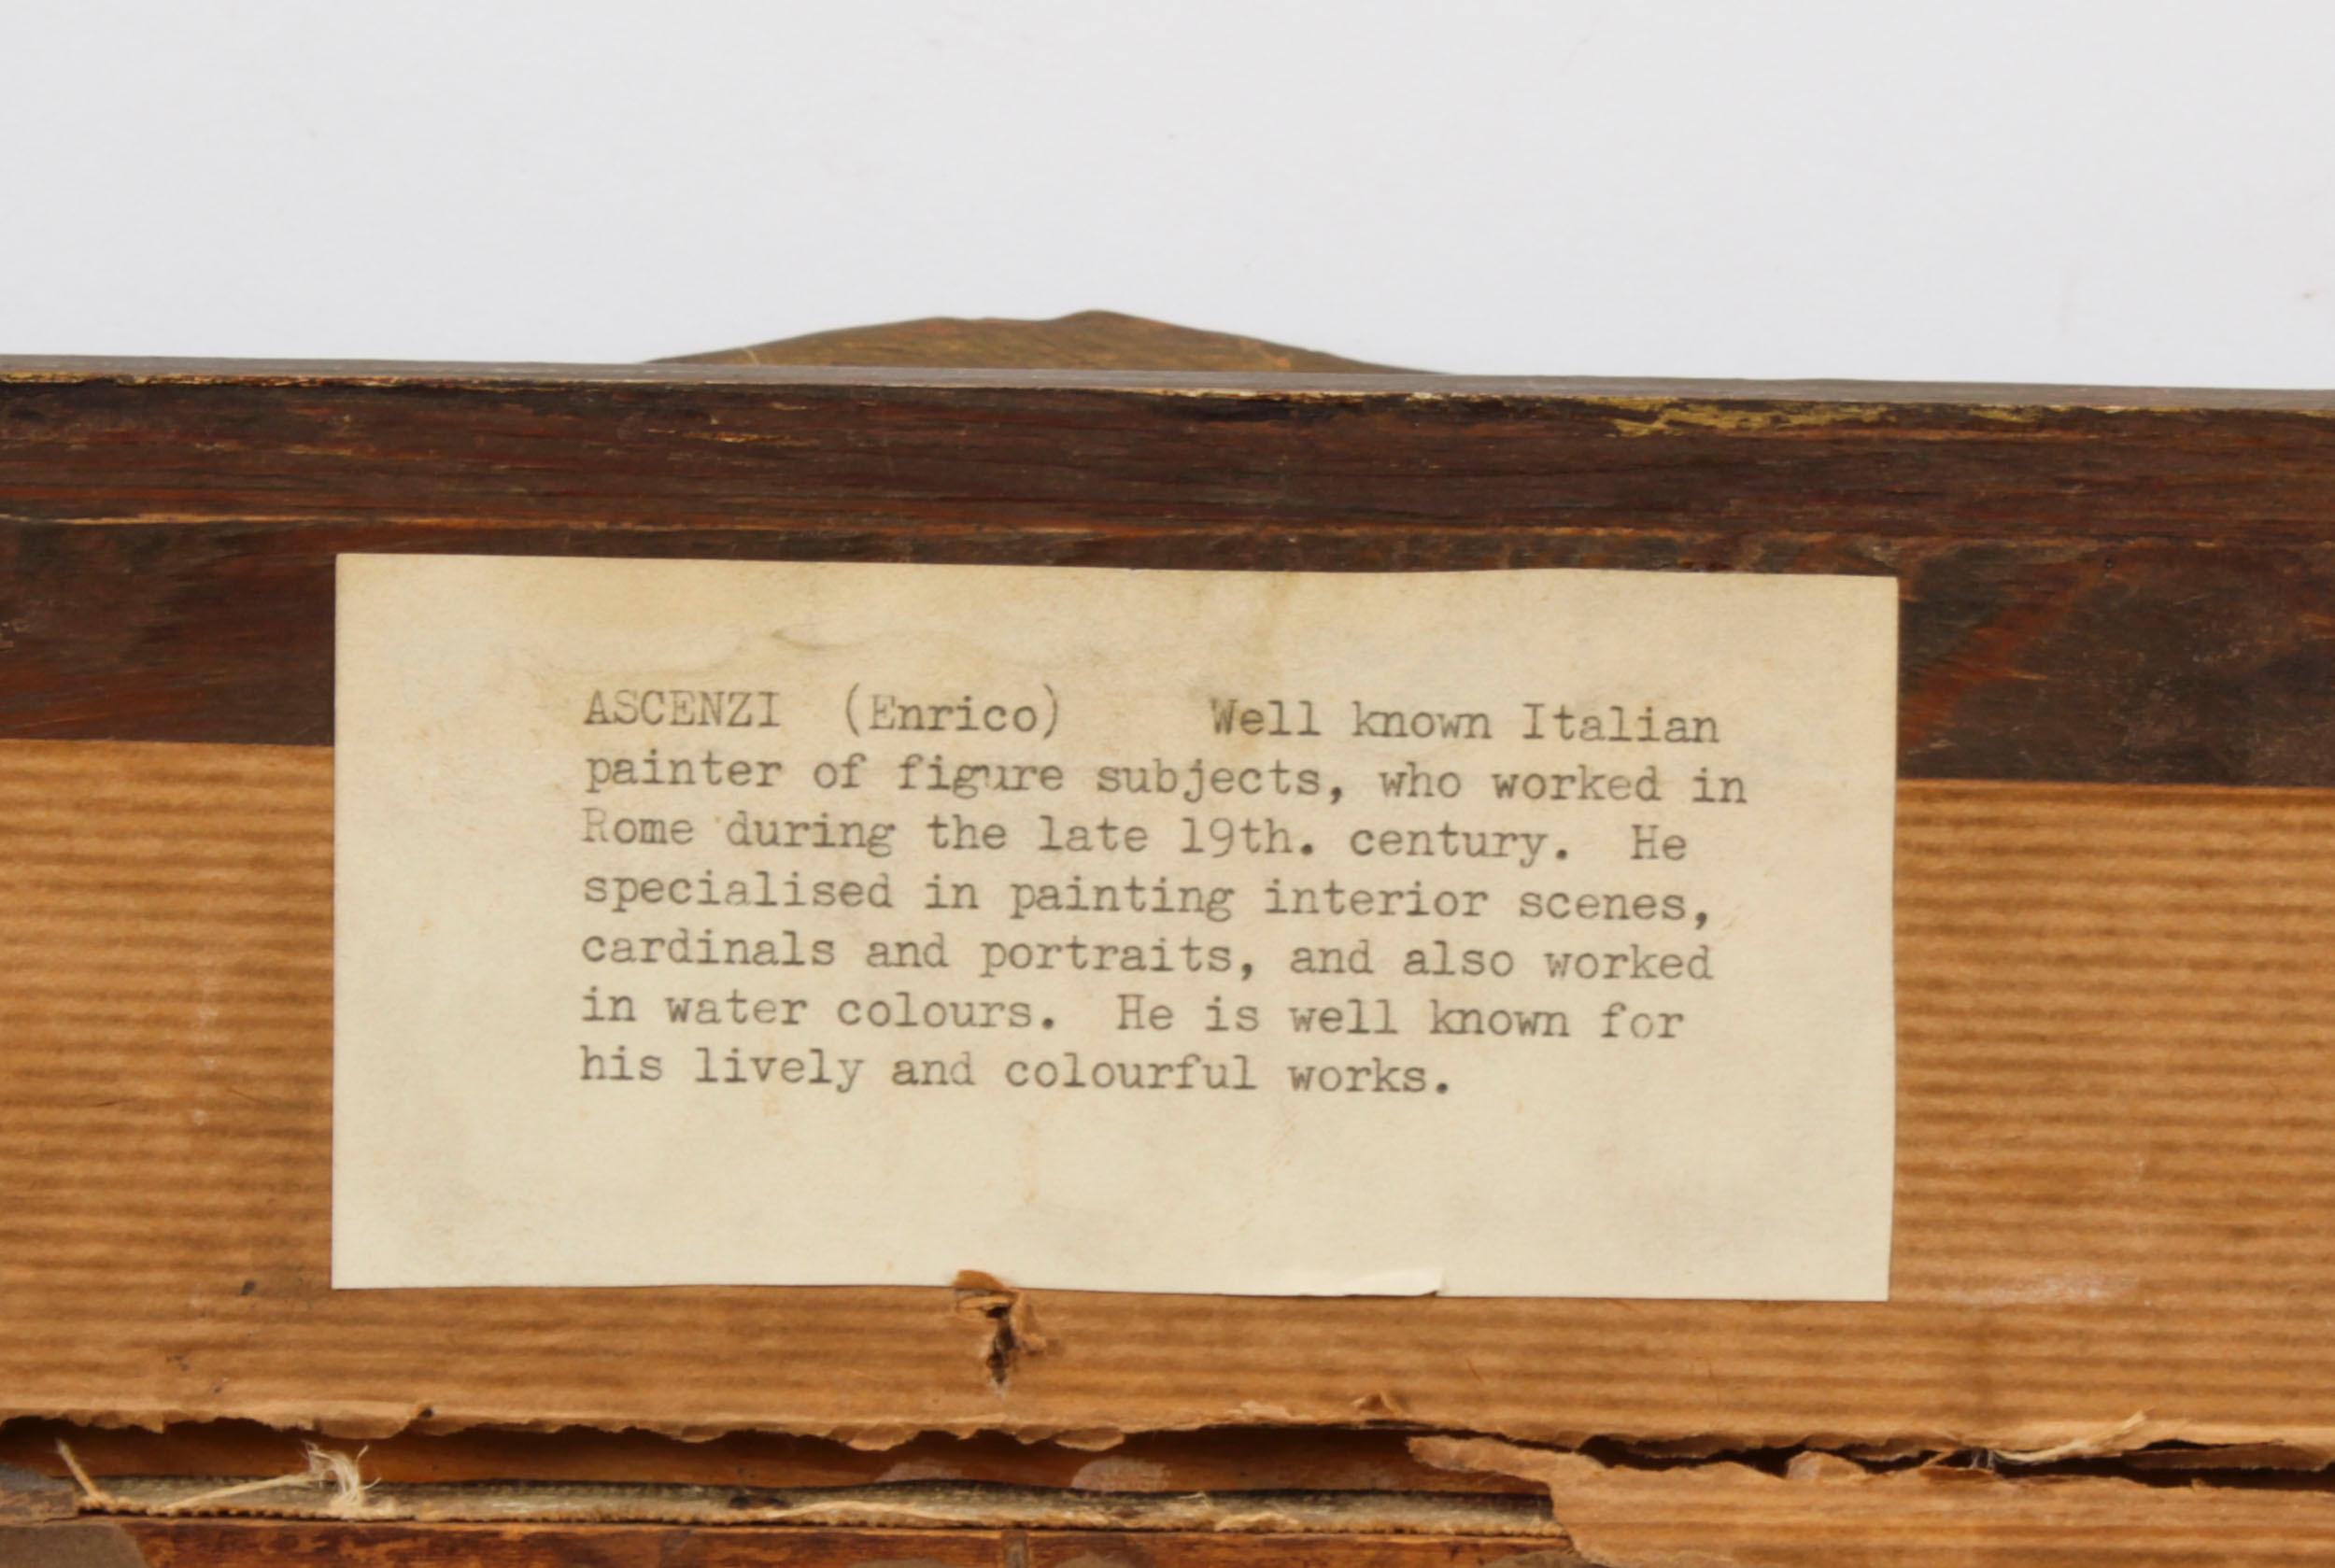 ASCENZI (Enrico) Well known Italian
painter of figure subjects, who worked in
Rome during the late 19th. century. He
specialised in painting interior scenes,
cardinals and portraits, and also worked
in water colours. He is well known for
his lively and colourful works.